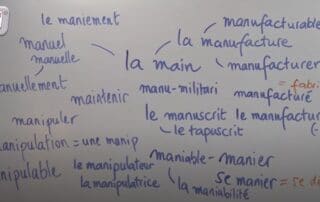 le maniement
manufacturable
manuel
la
manufacture
manuelle
manufacturer
la main
anuellement
= fabri
maintenir
manu-militari
manufacturé
manipuler
le manuscrit
le manufactur
le tapuscrit
(-
anipulation = une manip
maniable - manier
nipulable
le manipulateur
se manier = se dé
la manipulatrice
la maniabilité